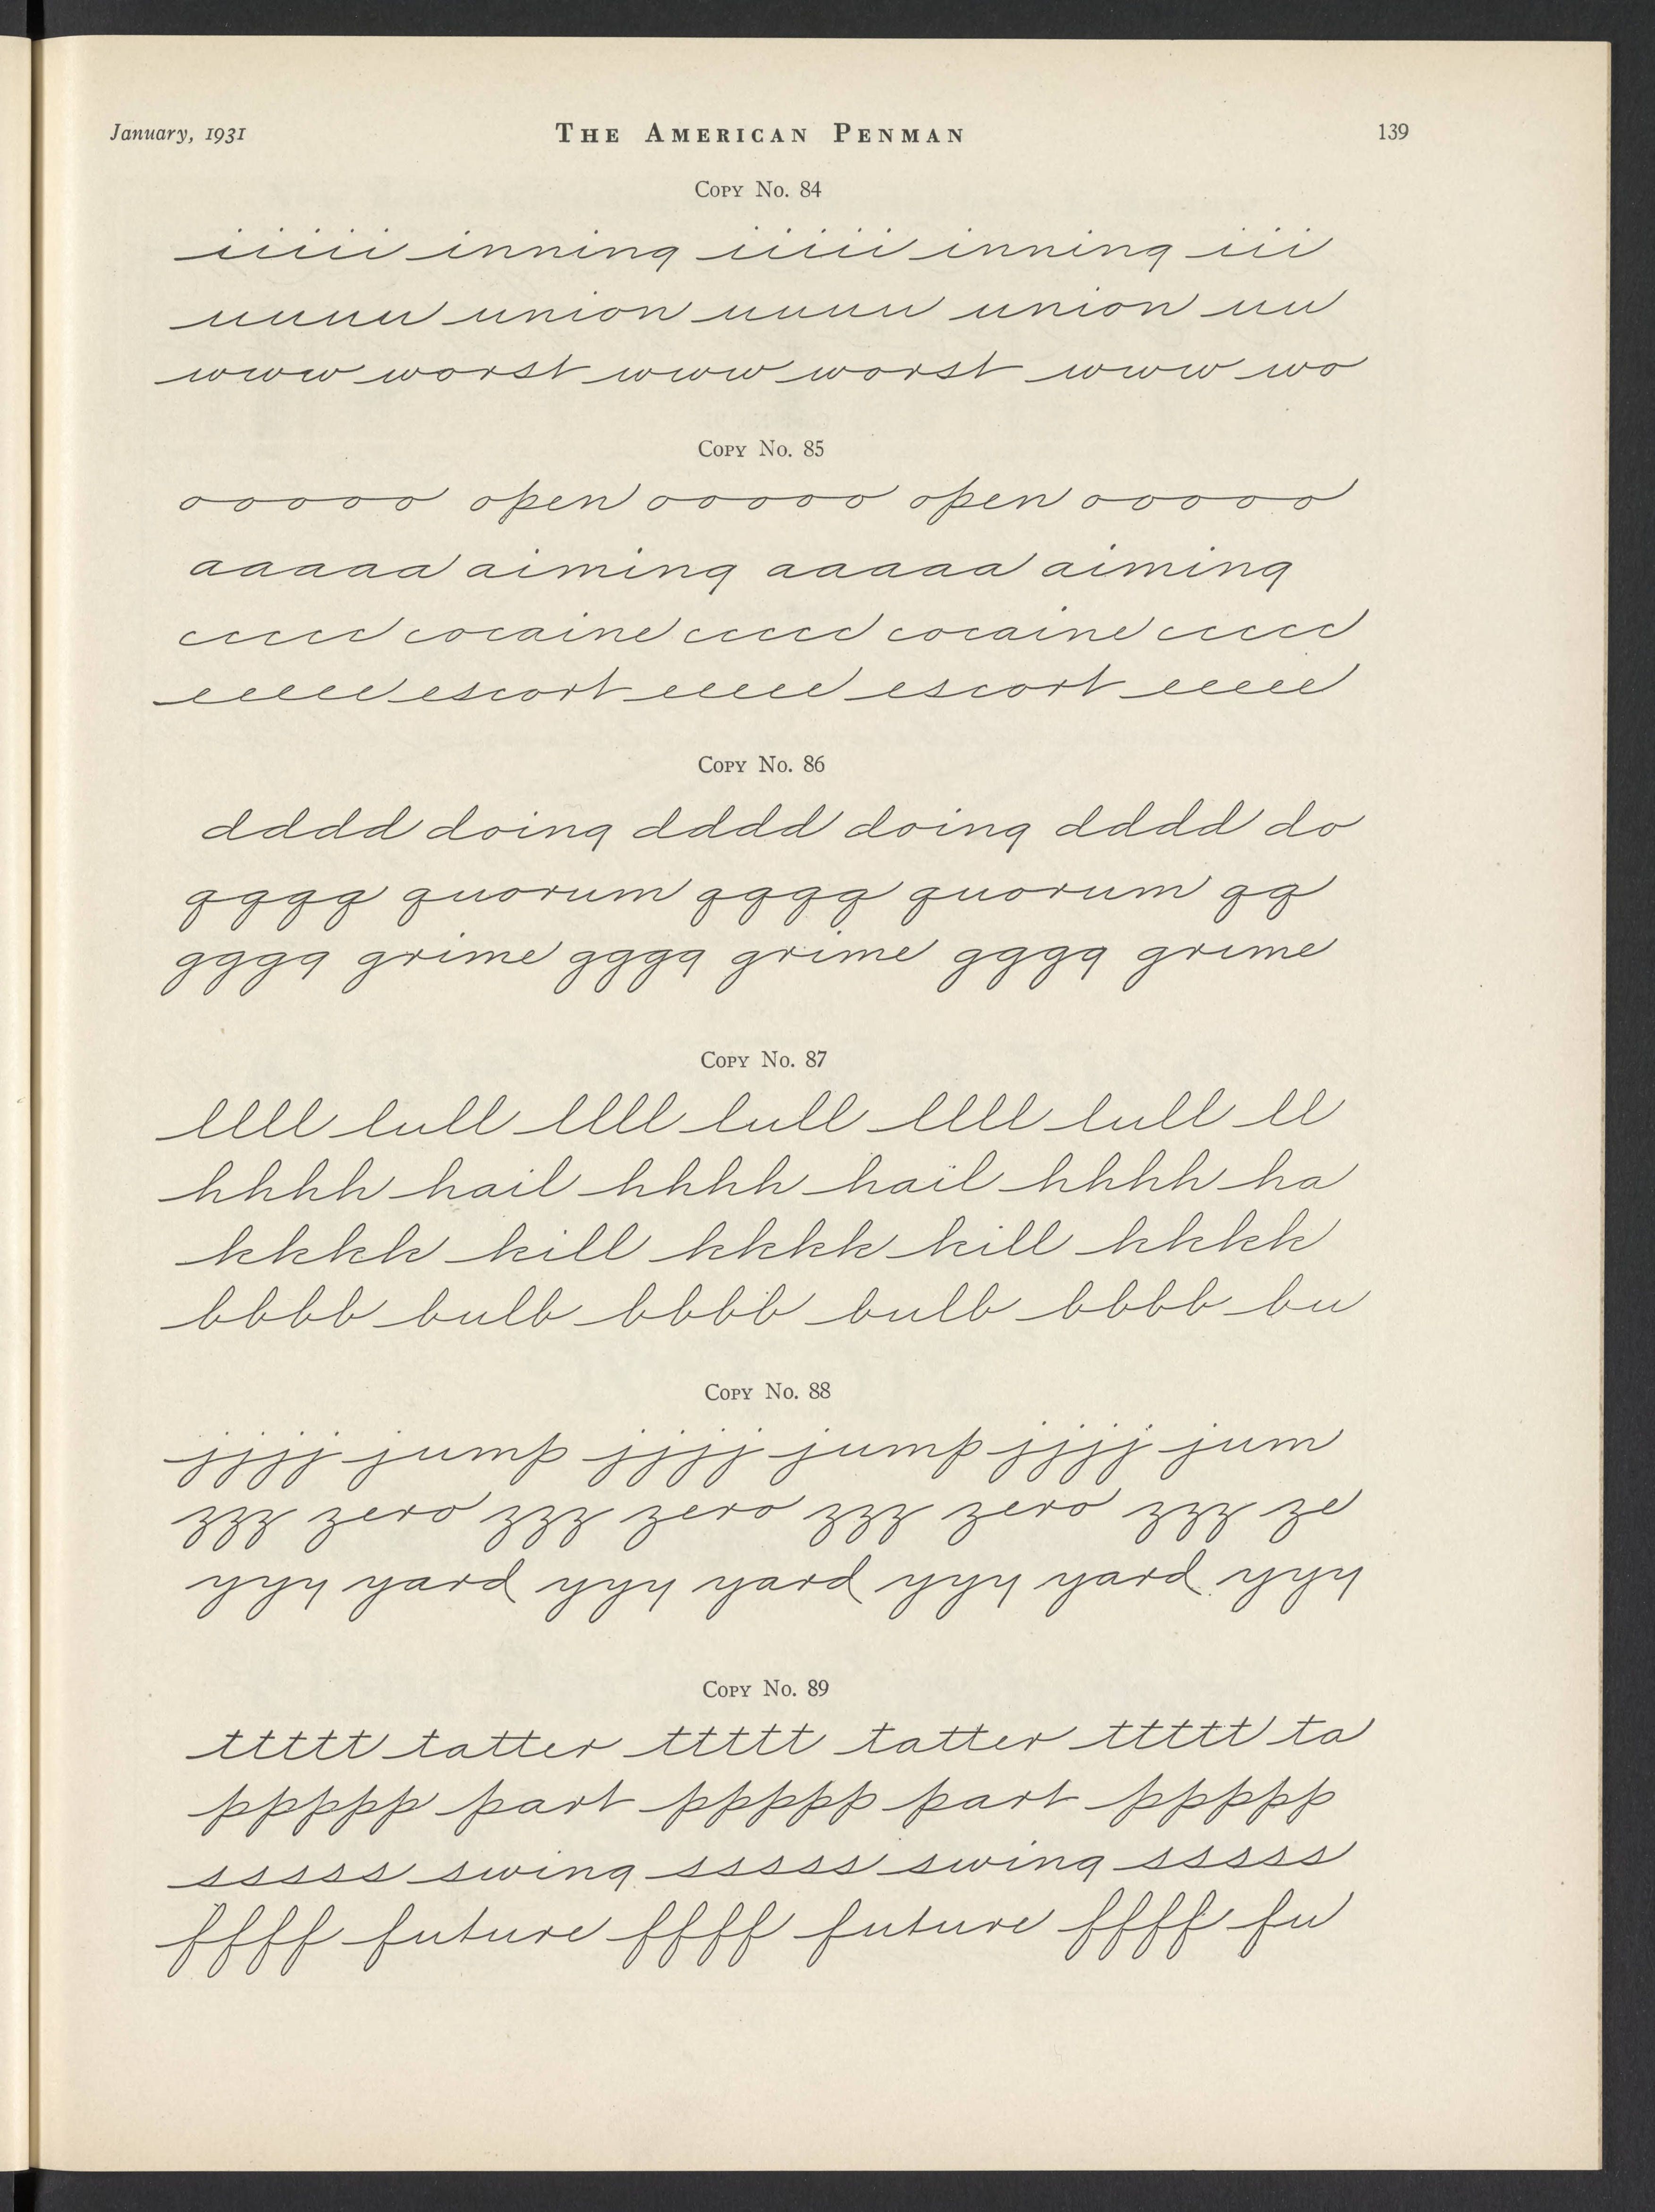 January, 1931 THE AMERICAN PENMAN 139
COPY No. 84
iiiii inning iiiii inning iii
uuuu union uuuu union uu
www worst www worst www wo
COPY No. 85
ooooo open ooooo open ooooo
aaaaa aiming aaaaa aiming
ccccc cocaine ccccc cocaine ccccc
eeeee escort eeeee escort eeeee
COPY No. 86
dddd doing dddd doing dddd do
qqqq quorum qqqq quorum qq
gggg grime gggg grime gggg grime
COPY No. 87
llll lull llll lull llll lull ll
hhhh hail hhhh hail hhhh ha
kkkk kill kkkk kill kkkk
bbbb bulb bbbb bulb bbbb bu
COPY No. 88
jjjj jump jjjj jump jjjj jum
zzz zero zzz zero zzz zero zzz ze
yyy yard yyy yard yyy yard yyy
COPY No. 89
ttttt tatter ttttt tatter ttttt ta
ppppp part ppppp part ppppp
sssss swing sssss swing sssss
ffff future ffff future ffff fu